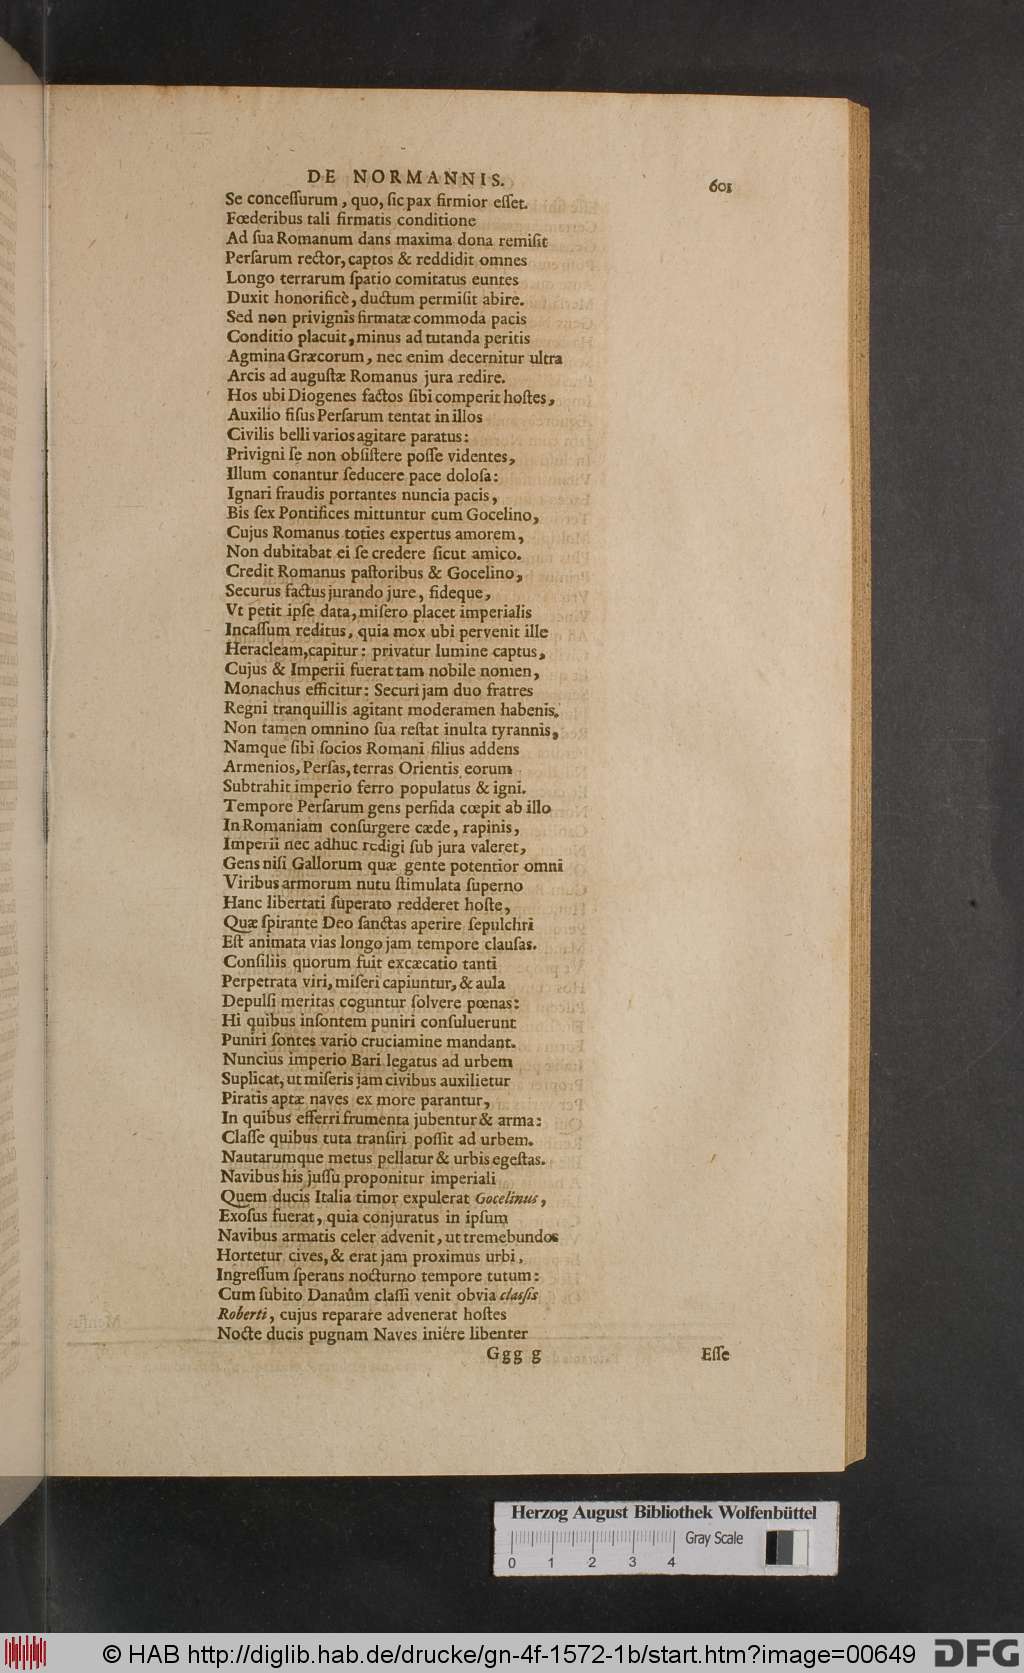 DE NORMANNIS.
601
Se conceſſurum, quo, ſic pax firmior eſſet.
Fœderibus tali firmatis conditione
Ad ſua Romanum dans maxima dona remiſit
Perſarum rector, captos & reddidit omnes
Longo terrarum ſpatio comitatus euntes
Duxit honorificè, ductum permiſit abire.
Sed non privignis firmatæ commoda pacis
Conditio placuit, minus ad tutanda peritis
Agmina Græcorum, nec enim decernitur ultra
Arcis ad auguſtæ Romanus jura redire.
Hos ubi Diogenes factos ſibi comperit hoſtes,
Auxilio fiſus Perſarum tentat in illos
Civilis belli varios agitare paratus:
Privigni ſe non obſiſtere poſſe videntes,
Illum conantur ſeducere pace doloſa:
Ignari fraudis portantes nuncia pacis,
Bis ſex Pontifices mittuntur cum Gocelino,
Cujus Romanus toties expertus amorem,
Non dubitabat ei ſe credere ſicut amico.
Credit Romanus paſtoribus & Gocelino,
Securus factus jurando jure, fideque,
Vt petit ipſe data, miſero placet imperialis
Incaſſum reditus, quia mox ubi pervenit ille
Heracleam, capitur: privatur lumine captus,
Cujus & Imperii fuerat tam nobile nomen,
Monachus efficitur: Securi jam duo fratres
Regni tranquillis agitant moderamen habenis.
Non tamen omnino ſua reſtat inulta tyrannis,
Namque ſibi ſocios Romani filius addens
Armenios, Perſas, terras Orientis eorum
Subtrahit imperio ferro populatus & igni.
Tempore Perſarum gens perfida cœpit ab illo
In Romaniam conſurgere cæde, rapinis,
Imperii nec adhuc redigi ſub jura valeret,
Gens niſi Gallorum quæ gente potentior omni
Viribus armorum nutu ſtimulata ſuperno
Hanc libertati ſuperato redderet hoſte,
Quæ ſpirante Deo ſanctas aperire ſepulchri
Eſt animata vias longo jam tempore clauſas.
Conſiliis quorum fuit excæcatio tanti
Perpetrata viri, miſeri capiuntur, & aula
Depulſi meritas coguntur ſolvere pœnas:
Hi quibus inſontem puniri conſuluerunt
Puniri ſontes vario cruciamine mandant.
Nuncius imperio Bari legatus ad urbem
Suplicat, ut miſeris jam civibus auxilietur
Piratis aptæ naves ex more parantur,
In quibus efferri frumenta jubentur & arma:
Claſſe quibus tuta tranſiri poſſit ad urbem.
Nautarumque metus pellatur & urbis egeſtas.
Navibus his juſſu proponitur imperiali
Quem ducis Italia timor expulerat Gocelinus,
Exoſus fuerat, quia conjuratus in ipſum
Navibus armatis celer advenit, ut tremebundos
Hortetur cives, & erat jam proximus urbi,
Ingreſſum ſperans nocturno tempore tutum:
Cum ſubito Danaûm claſſi venit obvia claſſis
Roberti, cujus reparare advenerat hoſtes
Nocte ducis pugnam Naves iniére libenter
Ggg g
Eſſe
Herzog August Bibliothek Wolfenbüttel
Gray Scale
0 1 2 3 4
© HAB http://diglib.hab.de/drucke/gn-4f-1572-1b/start.htm?image=00649
DFG